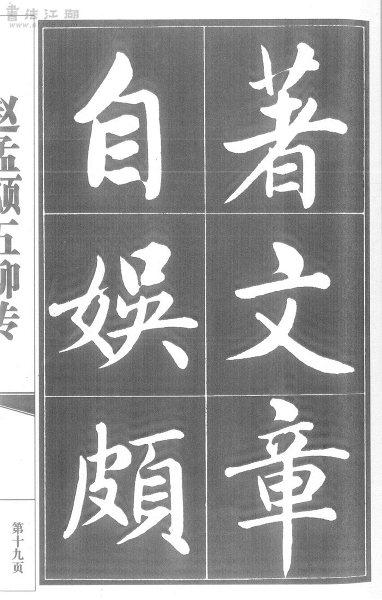 著文章
自娛頗
赵孟頫五柳传
第十九页
書法江湖